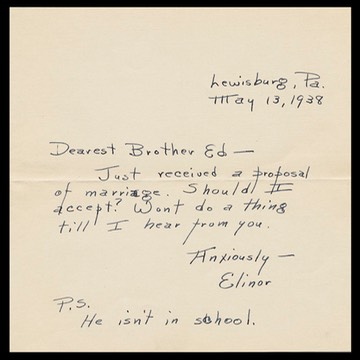 Lewisburg, Pa.
May 13, 1938
Dearest Brother Ed —
Just received a proposal
of marriage. Should I
accept? Wont do a thing
till I hear from you.
Anxiously —
Elinor
P.S.
He isn't in school.